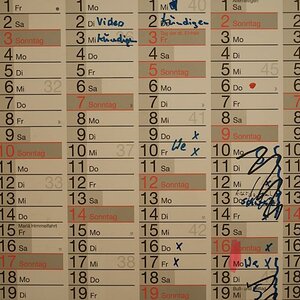 1 Fr
2 Sa
3 Sonntag
4 Mo
5 Di
6 Mi 32
7 Do
8 Fr
9 Sa
10 Sonntag
11 Mo
12 Di
13 Mi 33
14 Do
15 Fr Mariä Himmelfahrt
16 Sa
17 Sonntag
18 Mo
19 Di
1 Mo
2 Di Video
3 Mi kündigen
4 Do
5 Fr
6 Sa
7 Sonntag
8 Mo
9 Di
10 Mi 37
11 Do
12 Fr
13 Sa
14 Sonntag
15 Mo
16 Di
17 Mi 38
18 Do
19 Fr
1 Mi 40
2 Do kündigen
3 Fr Tag der dt. Einheit
4 Sa
5 Sonntag
6 Mo
7 Di
8 Mi 41
9 Do x
10 Fr We x
11 Sa
12 Sonntag
13 Mo
14 Di
15 Mi 42
16 Do x
17 Fr x
18 Sa
19 Sonntag
1 Sa Allerheiligen
2 Sonntag
3 Mo
4 Di
5 Mi 45
6 Do
7 Fr
8 Sa
9 Sonntag
10 Mo
11 Di
12 Mi
13 Do
14 Fr
15 Sa
16 Sonntag x
17 Mo We x
18 Di
19 Mi